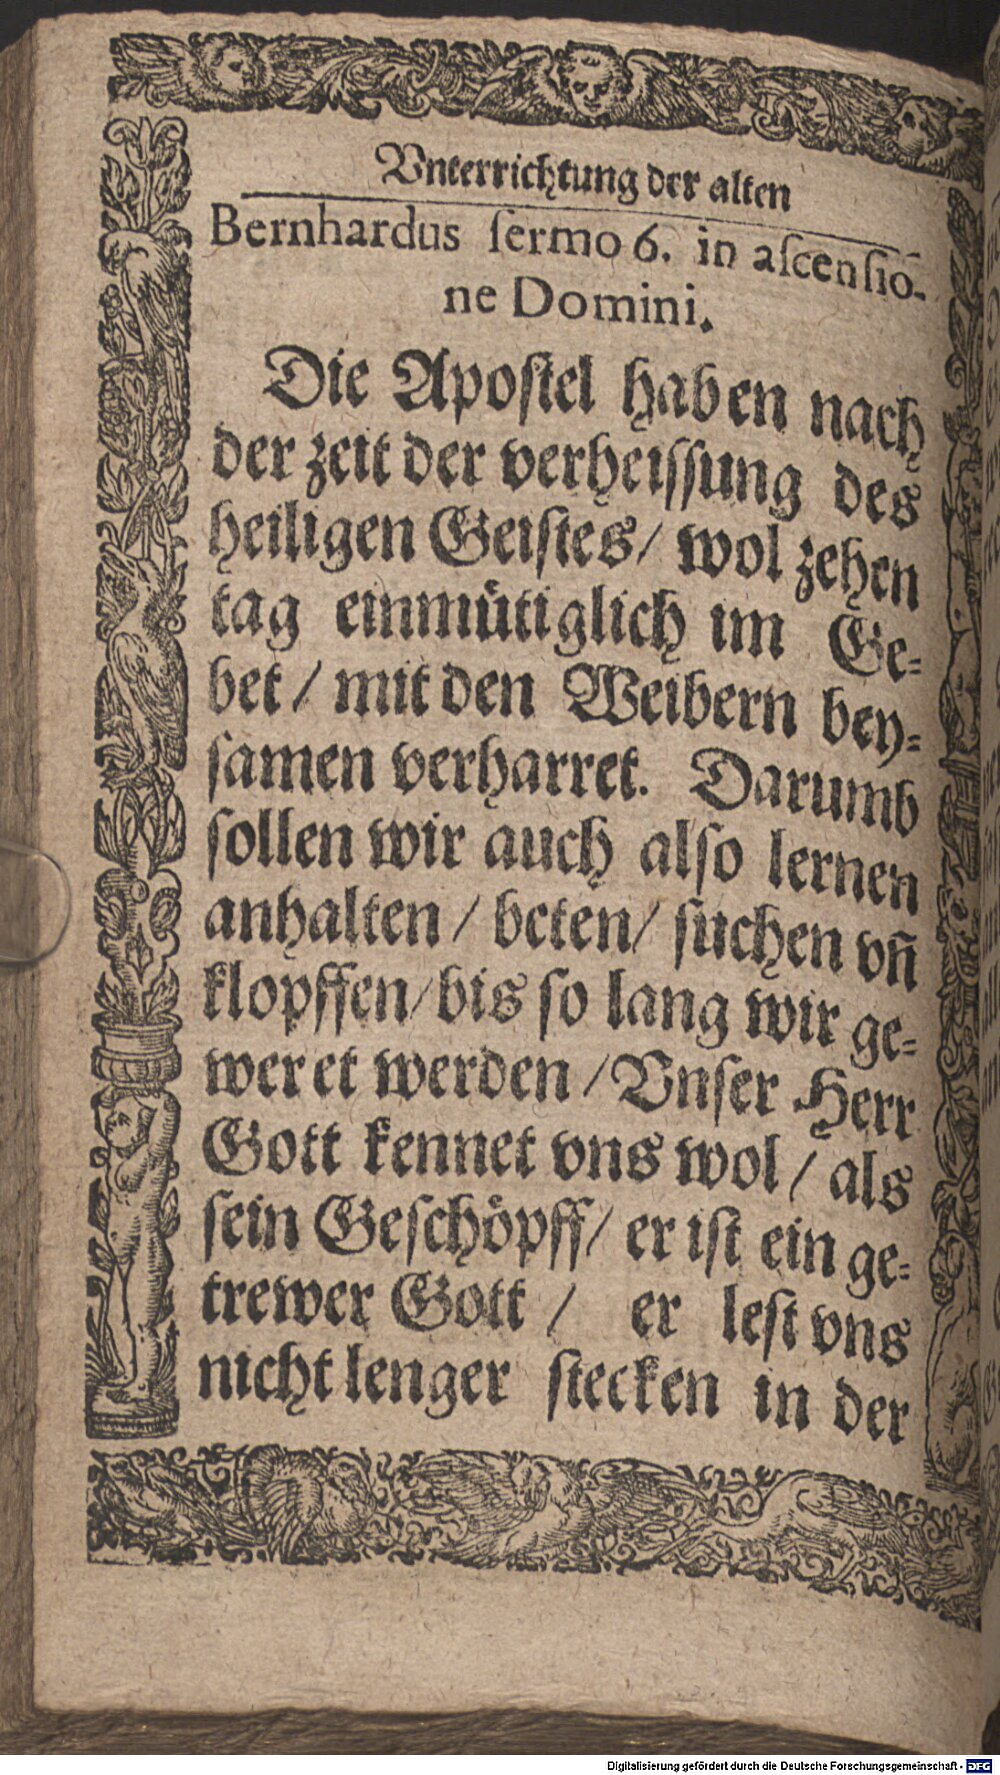 Vnterrichtung der alten
Bernhardus sermo 6. in ascensio-
ne Domini.
Die Apostel haben nach
der zeit der verheissung des
heiligen Geistes/ wol zehen
tag einmütiglich im Ge-
bet/ mit den Weibern bey-
samen verharret. Darumb
sollen wir auch also lernen
anhalten/ beten/ suchen vñ
klopffen/ bis so lang wir ge-
weret werden/ Vnser Herr
Gott kennet vns wol/ als
sein Geschöpff/ er ist ein ge-
trewer Gott/ er lest vns
nicht lenger stecken in der
Digitalisierung gefördert durch die Deutsche Forschungsgemeinschaft - DFG